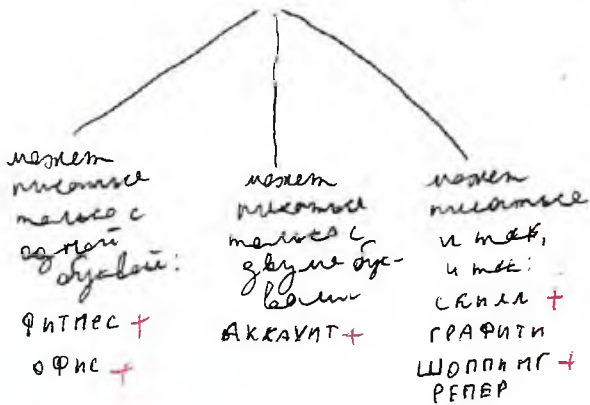 может
писаться
только с
одной
буквой:
ФИТНЕС +
ОФИС +
может
писаться
только с
двумя бук-
вами
АККАУНТ +
может
писаться
и так,
и так:
СКИЛЛ +
ГРАФИТИ
ШОППИНГ +
РЕПЕР